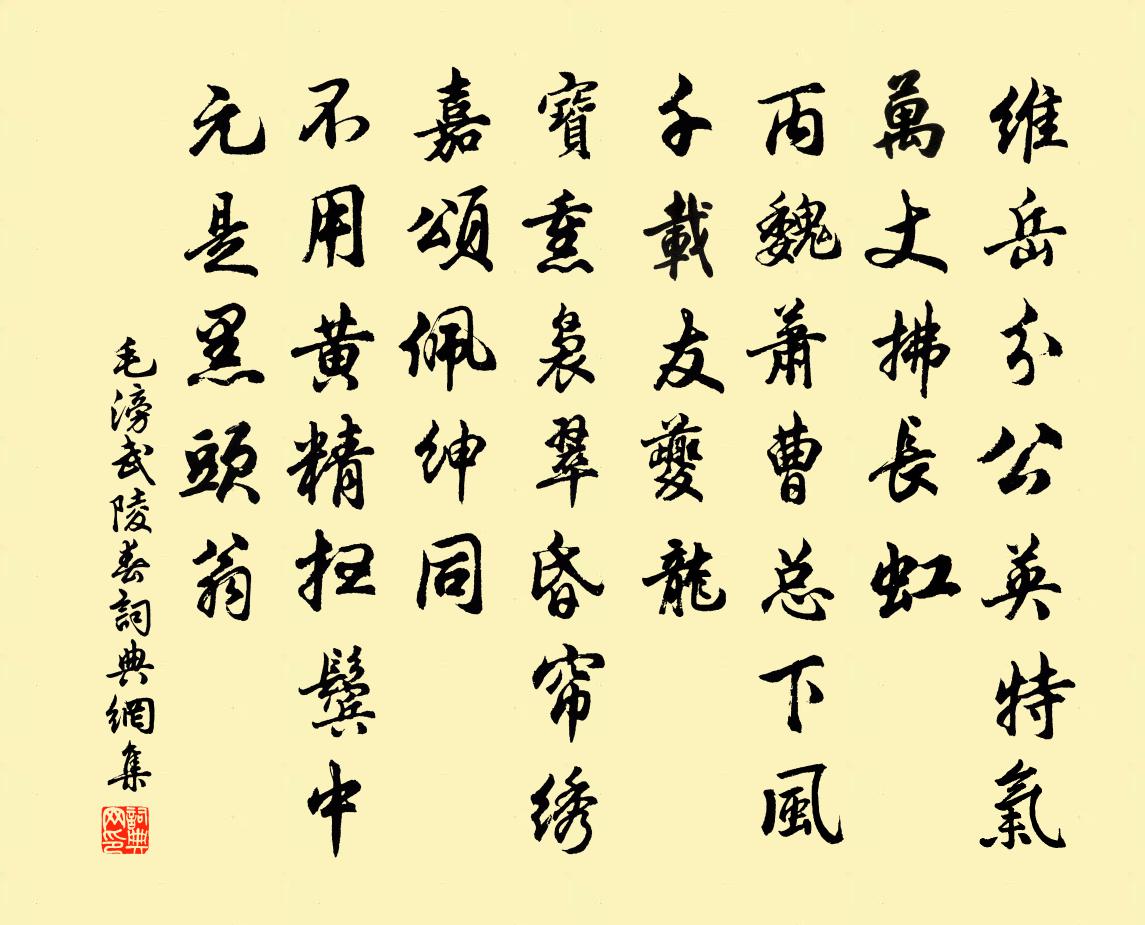 維岳分公英特氣
萬丈拂長虹
丙魏蕭曹总下風
千載友夔龍
寶熏裊翠昏帘绣
嘉頌佩紳同
不用黃精扫鬓中
元是黑頭翁
毛滂武陵春詞典網集
詞典网印